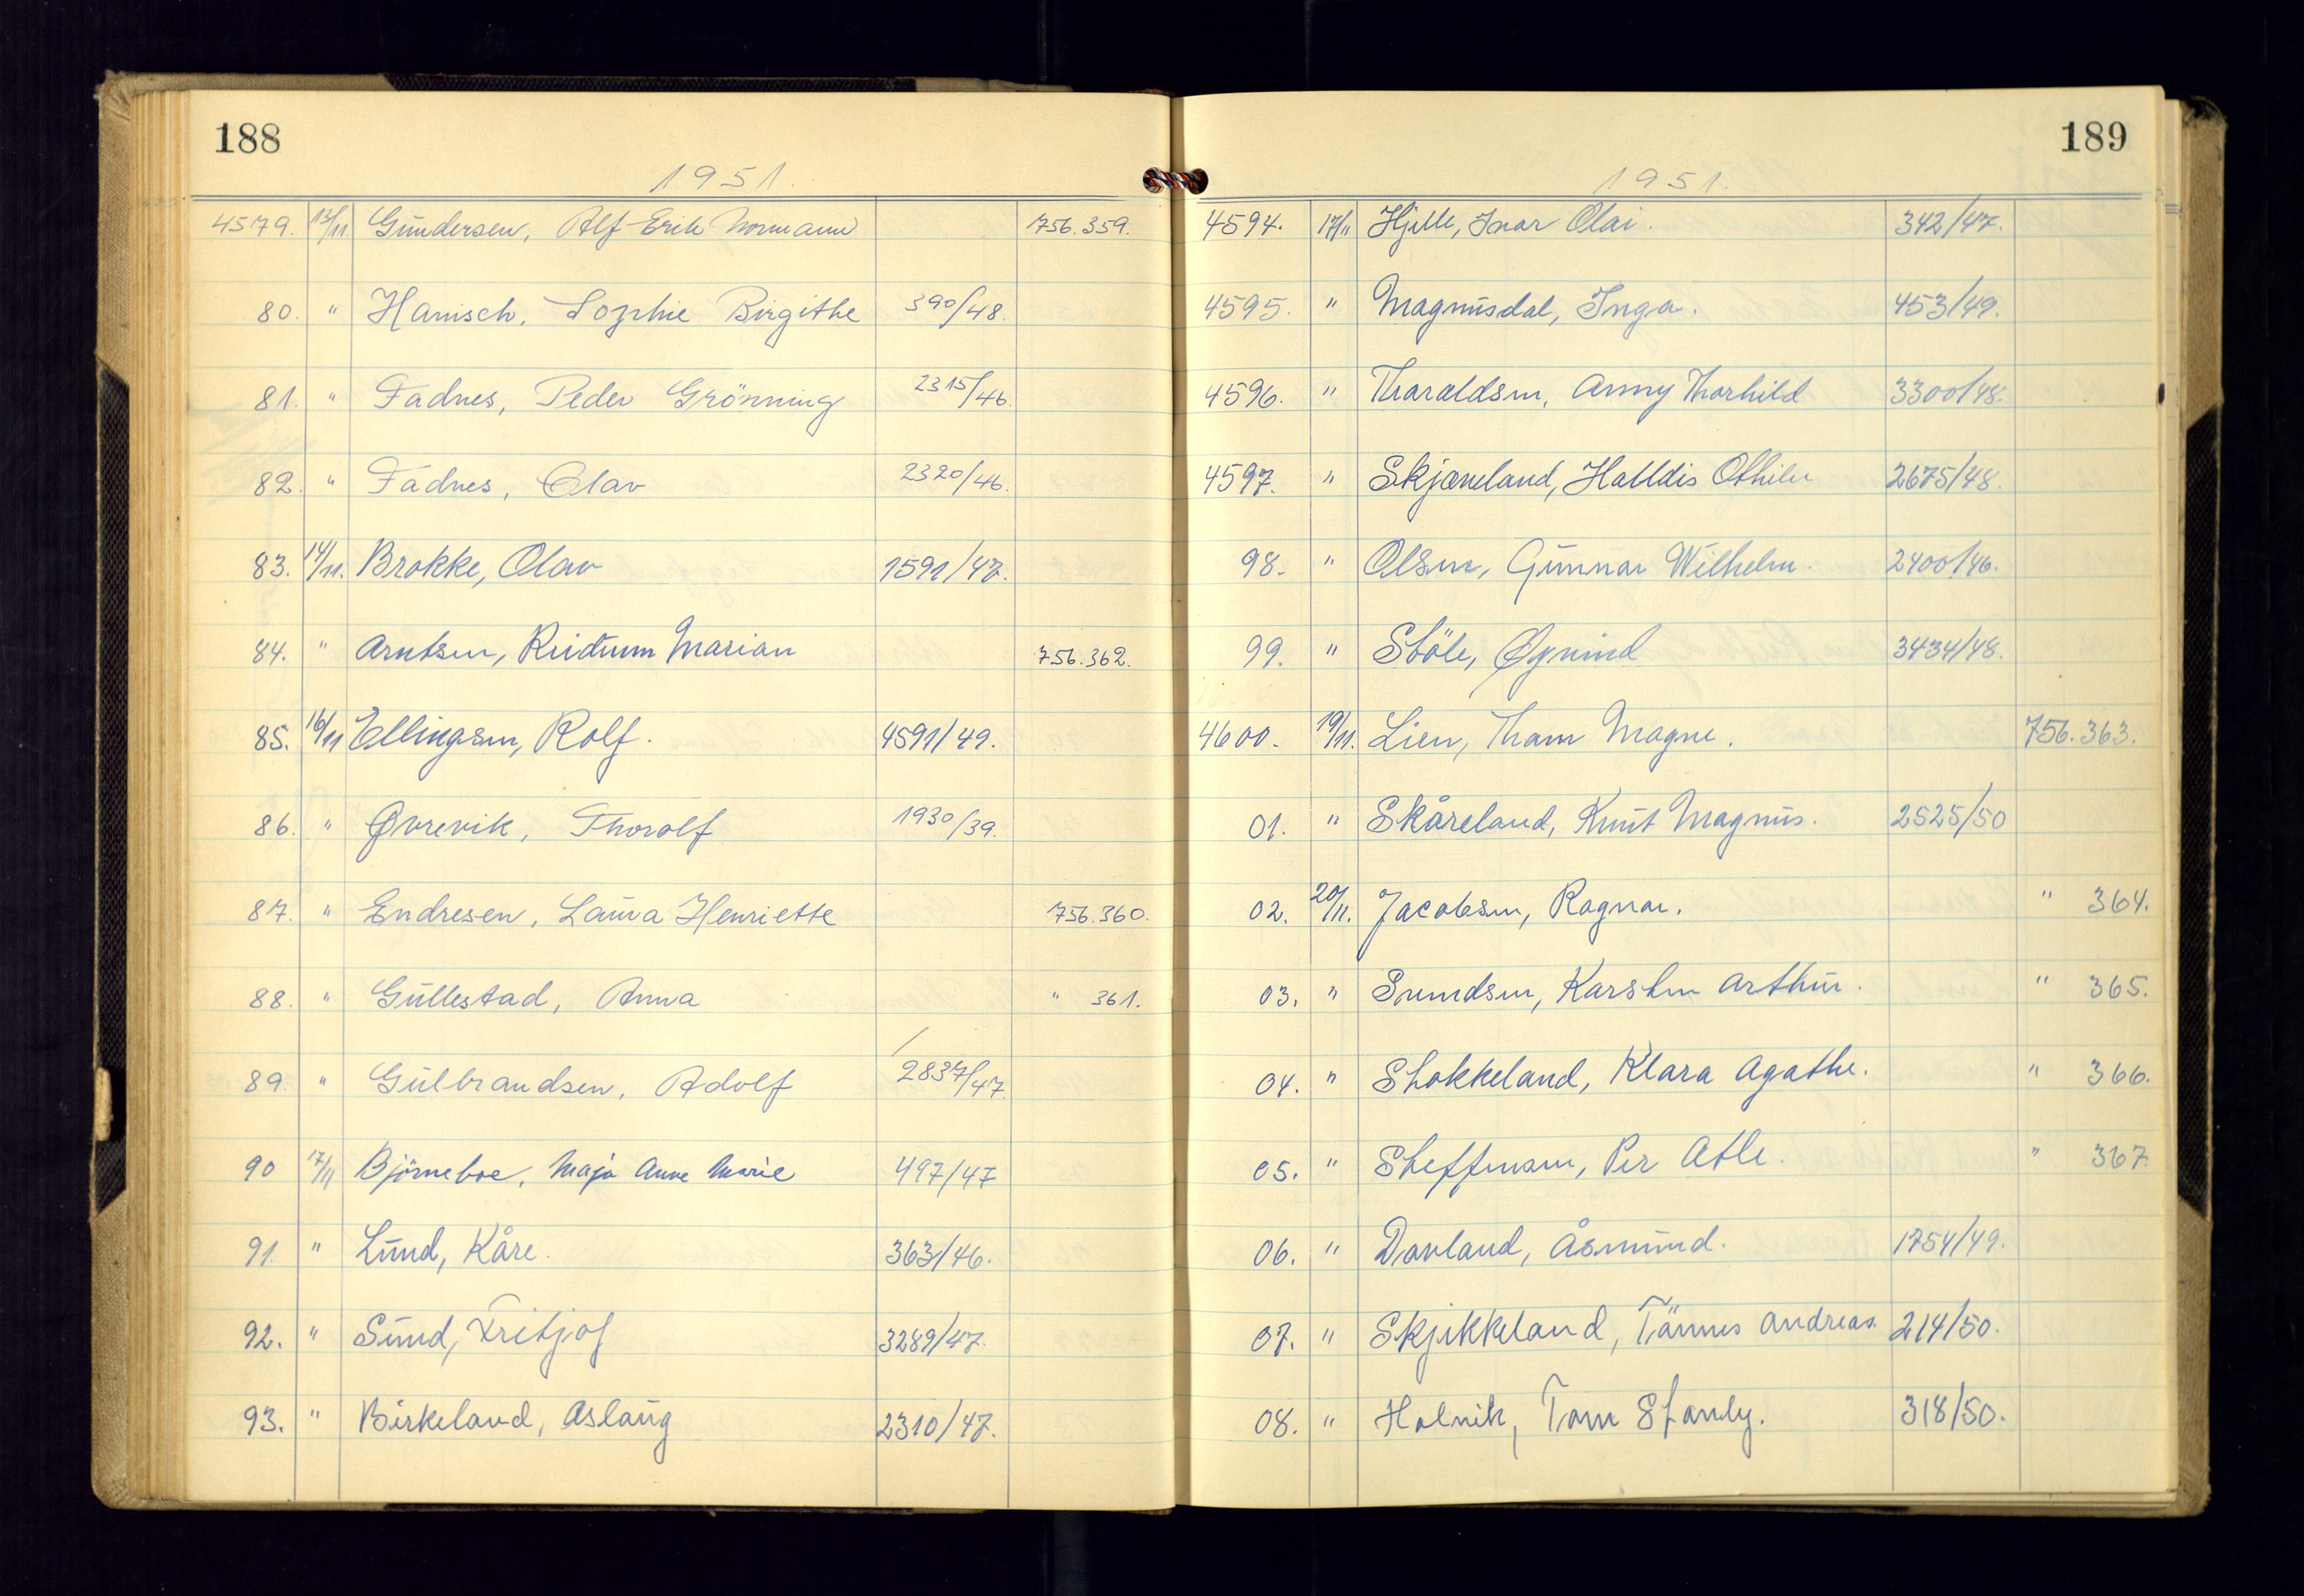 188
1951.
4579. 13/11 Gundersen, Alf Erik Normann 756.359.
80. " Hanisch, Sophie Birgithe 390/48.
81. " Fadnes, Peder Grönning 2315/46.
82. " Fadnes, Olav 2320/46.
83. 14/11. Brokke, Olav 1591/47.
84. " Arntsen, Marian 756.362.
85. 16/11 Ellingsen, Rolf. 4591/49.
86. " Øvrevik, Thorolf 1930/39.
87. " Endresen, Laura Henriette 756.360.
88. " Gullestad, Anna " 361.
89. " Gulbrandsen, Adolf 2837/47.
90 17/11 Björneboe, Maja Anne Marie 497/47
91. " Lund, Kåre. 363/46.
92. " Sund, Fritjof 3289/47.
93. " Birkeland, Aslaug 2310/47.
189
1951.
4594. 17/11 Hjelle, Inar Olai. 342/47.
4595. " Magnusdal, Inga. 453/49.
4596. " Tharaldsen, Anny Thorhild 3300/48.
4597. " Skjæveland, Halldis Othilie 2675/48.
98. " Olsen, Gunnar Wilhelm. 2400/46.
99. " Stöle, Øyvind 3434/48.
4600. 19/11. Lien, Tham Magne. 756.363.
01. " Skåreland, Knut Magnus. 2525/50
02. 20/11. Jacobsen, Ragnar. " 364.
03. " Svendsen, Karsten Arthur. " 365.
04. " Stokkeland, Klara Agathe. " 366.
05. " Steffensen, Per Atle. " 367.
06. " Dovland, Åsmund. 1754/49.
07. " Skjekkeland, Tännes Andreas 214/50.
08. " Holvik, Tom Stanly. 318/50.